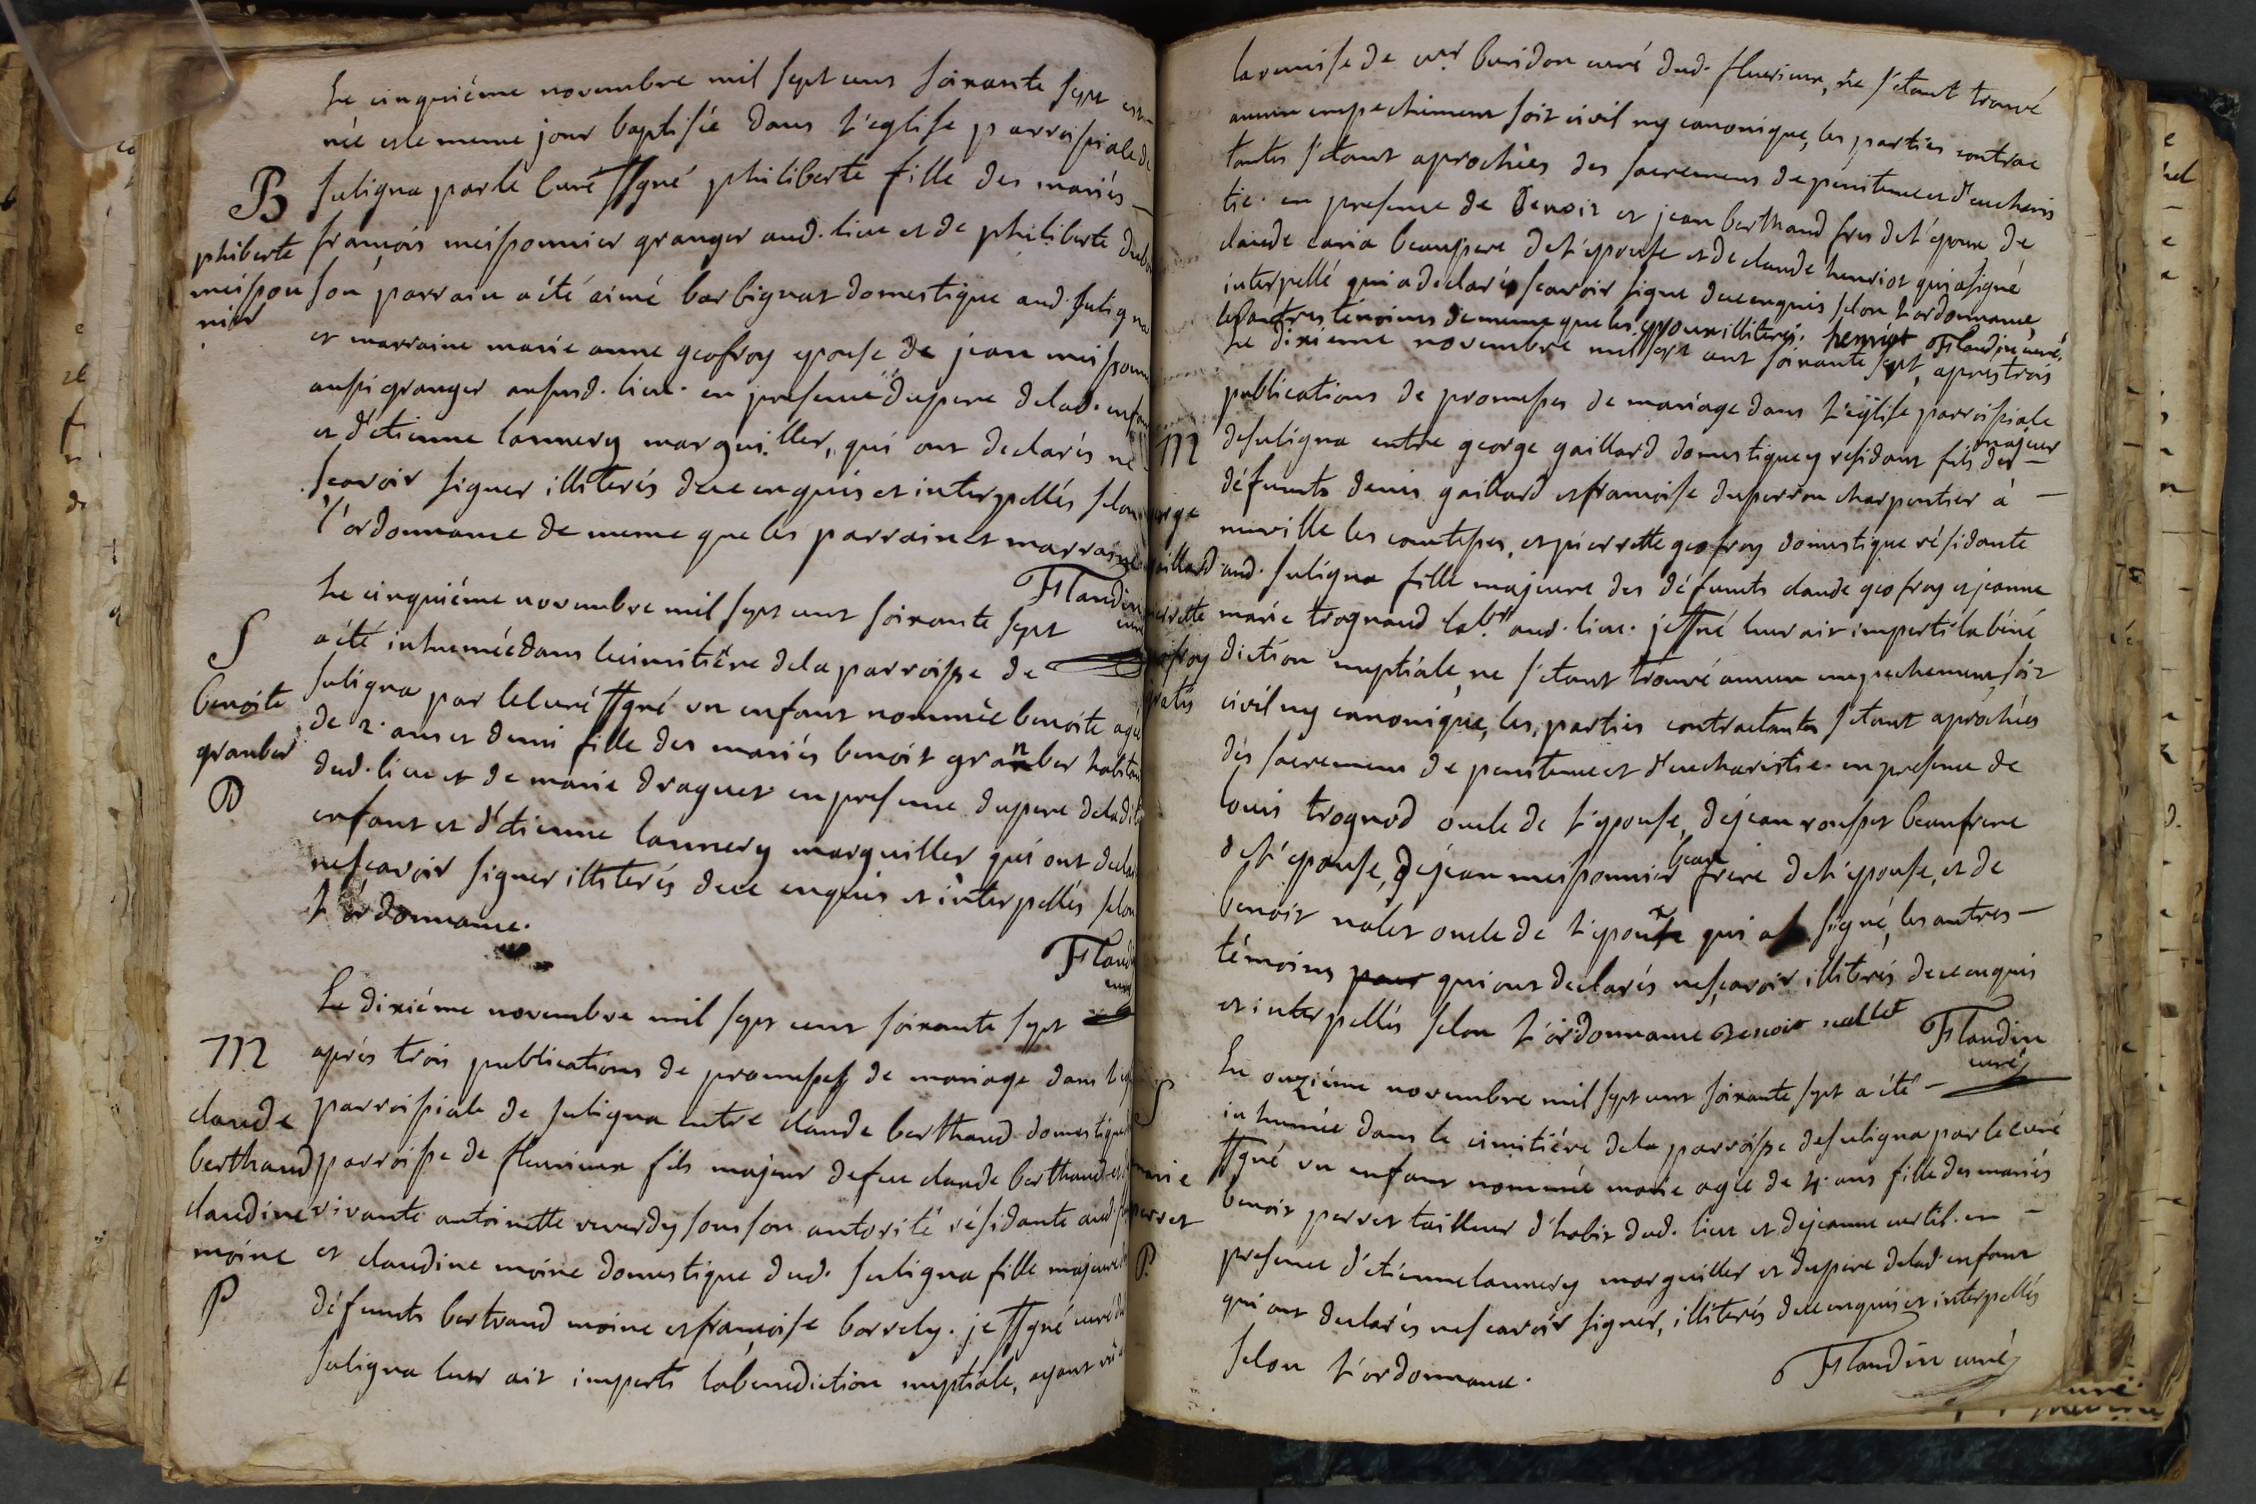 Le cinquiéme novembre mil sept cens soixante sept est
née et le meme jour baptisée dans l'eglise parroissiale de
B
suligna par le Curé ssgné philiberte fille des mariés —
phiberte
françois meissonnier granger aud. lieu et de philiberte
meisson
nier
son parrain a été aimé barbignat domestique aud. suligna
et marraine marie anne geofroy epouse de jean
aussi granger aususd. lieu. en presence du pere de lad.
et d'étienne lannery marguiller, qui ont declarés ne
scavoir signer illiterés de ce enquis et interpellés selon
l'ordonnance de meme que les parrain et marraine
Flandin
curé
Le cinquiéme novembre mil sept cent soixante sept
S
a été inhumée dans le cimitiére de la parroisse de
benoite
suligna par le Curé ssgné un enfant nommée benoite agée
granber
de 2. ans et demi fille des mariés benoit granber
P
dud. lieu et de marie draguet en presence du pere de ladite
enfant et d'étienne lannery marguiller qui ont
ne scavoir signer illiterés de ce enquis et interpellés selon
l'ordonnance.
Flandin
curé
Le dixiéme novembre mil sept cent soixante sept
M
aprés trois publications de promesses de mariage dans
claude
parroissiale de suligna entre claude berthaud domestique
berthaud
parroisse de fleurieux fils majeur de feu claude berthaud et
claudine
vivante antoinette reverdy sous son autorité résidante aud.
moine
et claudine moine domestique dud. suligna fille majeure
P
défunts bertrand moine et françoise borrely. je ssgné curé de
suligna leur ait imparti la benediction nuptiale, ayant
la remise de mr. buridon curé dud. fleurieux, ne s'étant trouvé
aucun empechement soit civil ny canonique, les parties contrac
tantes s'étant aprochées des sacremens de penitence et d'eucharis
tie. en presence de Benoit et jean berthaud fres de l'époux de
claude caria beaupere de l'epouse et de claude henriot qui a signé
interpellé qui a declaré scavoir signé de ce enquis selon l'ordonnance,
les autres témoins de meme que les epoux illiterés. henriot Flandin curé.
Le dixieme novembre mil sept cent soixante sept, apres trois
publications de promesses de mariage dans l'église parroissiale
M
de suligna entre george gaillard domestique y residant fils majeur des —
george
défunts denis gaillard et françoise duperron charpentier à —
neuville les comtesses, et pierrette geofroy domestique résidante
gaillard
aud. suligna fille majeure des défunts claude geofroy et jeanne
pierrette
marie trognaud labr. aud. lieu. je ssgné leur ait imparti la béné
geofroy
diction nuptiale, ne s'étant trouvé aucun empechement soit
gratis
civil ny canonique, les parties contractantes s'étant aprochées
dés sacremens de penitence et d'eucharistie. en presence de
louis trognod oncle de l'epouse, de jean rousset beaufrere
de l'epouse, de jean meissonnier beau frere de l'epouse, et de
benoit nalet oncle de l'epoux qui a signé, les autres —
témoins pour qui ont declarés ne scavoir illiterés de ce enquis
et interpellés selon l'ordonnance Benoit nallet
Flandin
curé
S
Le onziéme novembre mil sept cent soixante sept a été —
inhumée dans le cimitiére de la parroisse de suligna par le curé
marie
ssgné un enfant nommée marie agée de 4. ans fille des mariés
perret
benoit perret tailleur d'habit dud. lieu et de jeanne curtil. en —
P
presence d'étienne lannery marguiller et du pere de lad. enfant
qui ont declarés ne scavoir signer, illiterés de ce enquis et interpellés
selon l'ordonnance.
Flandin curé